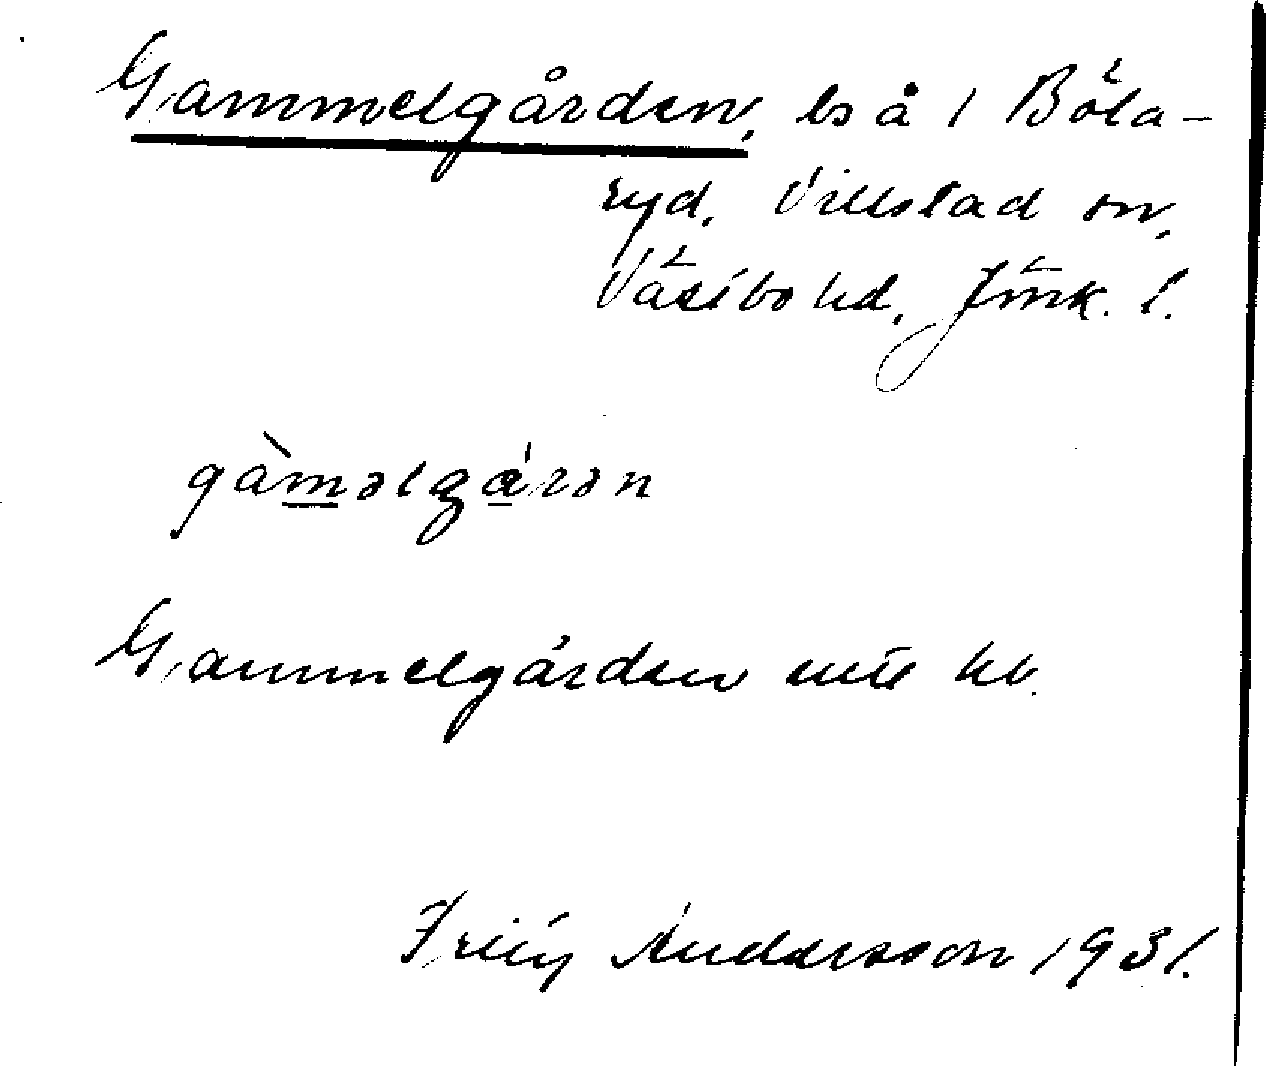 Gammelgården, ls å 1 Böla-
ryd, Villstad sn,
Västbo hd, Jönk. l.
gàməlgárən
Gammelgården hb.
Andersson 1931.